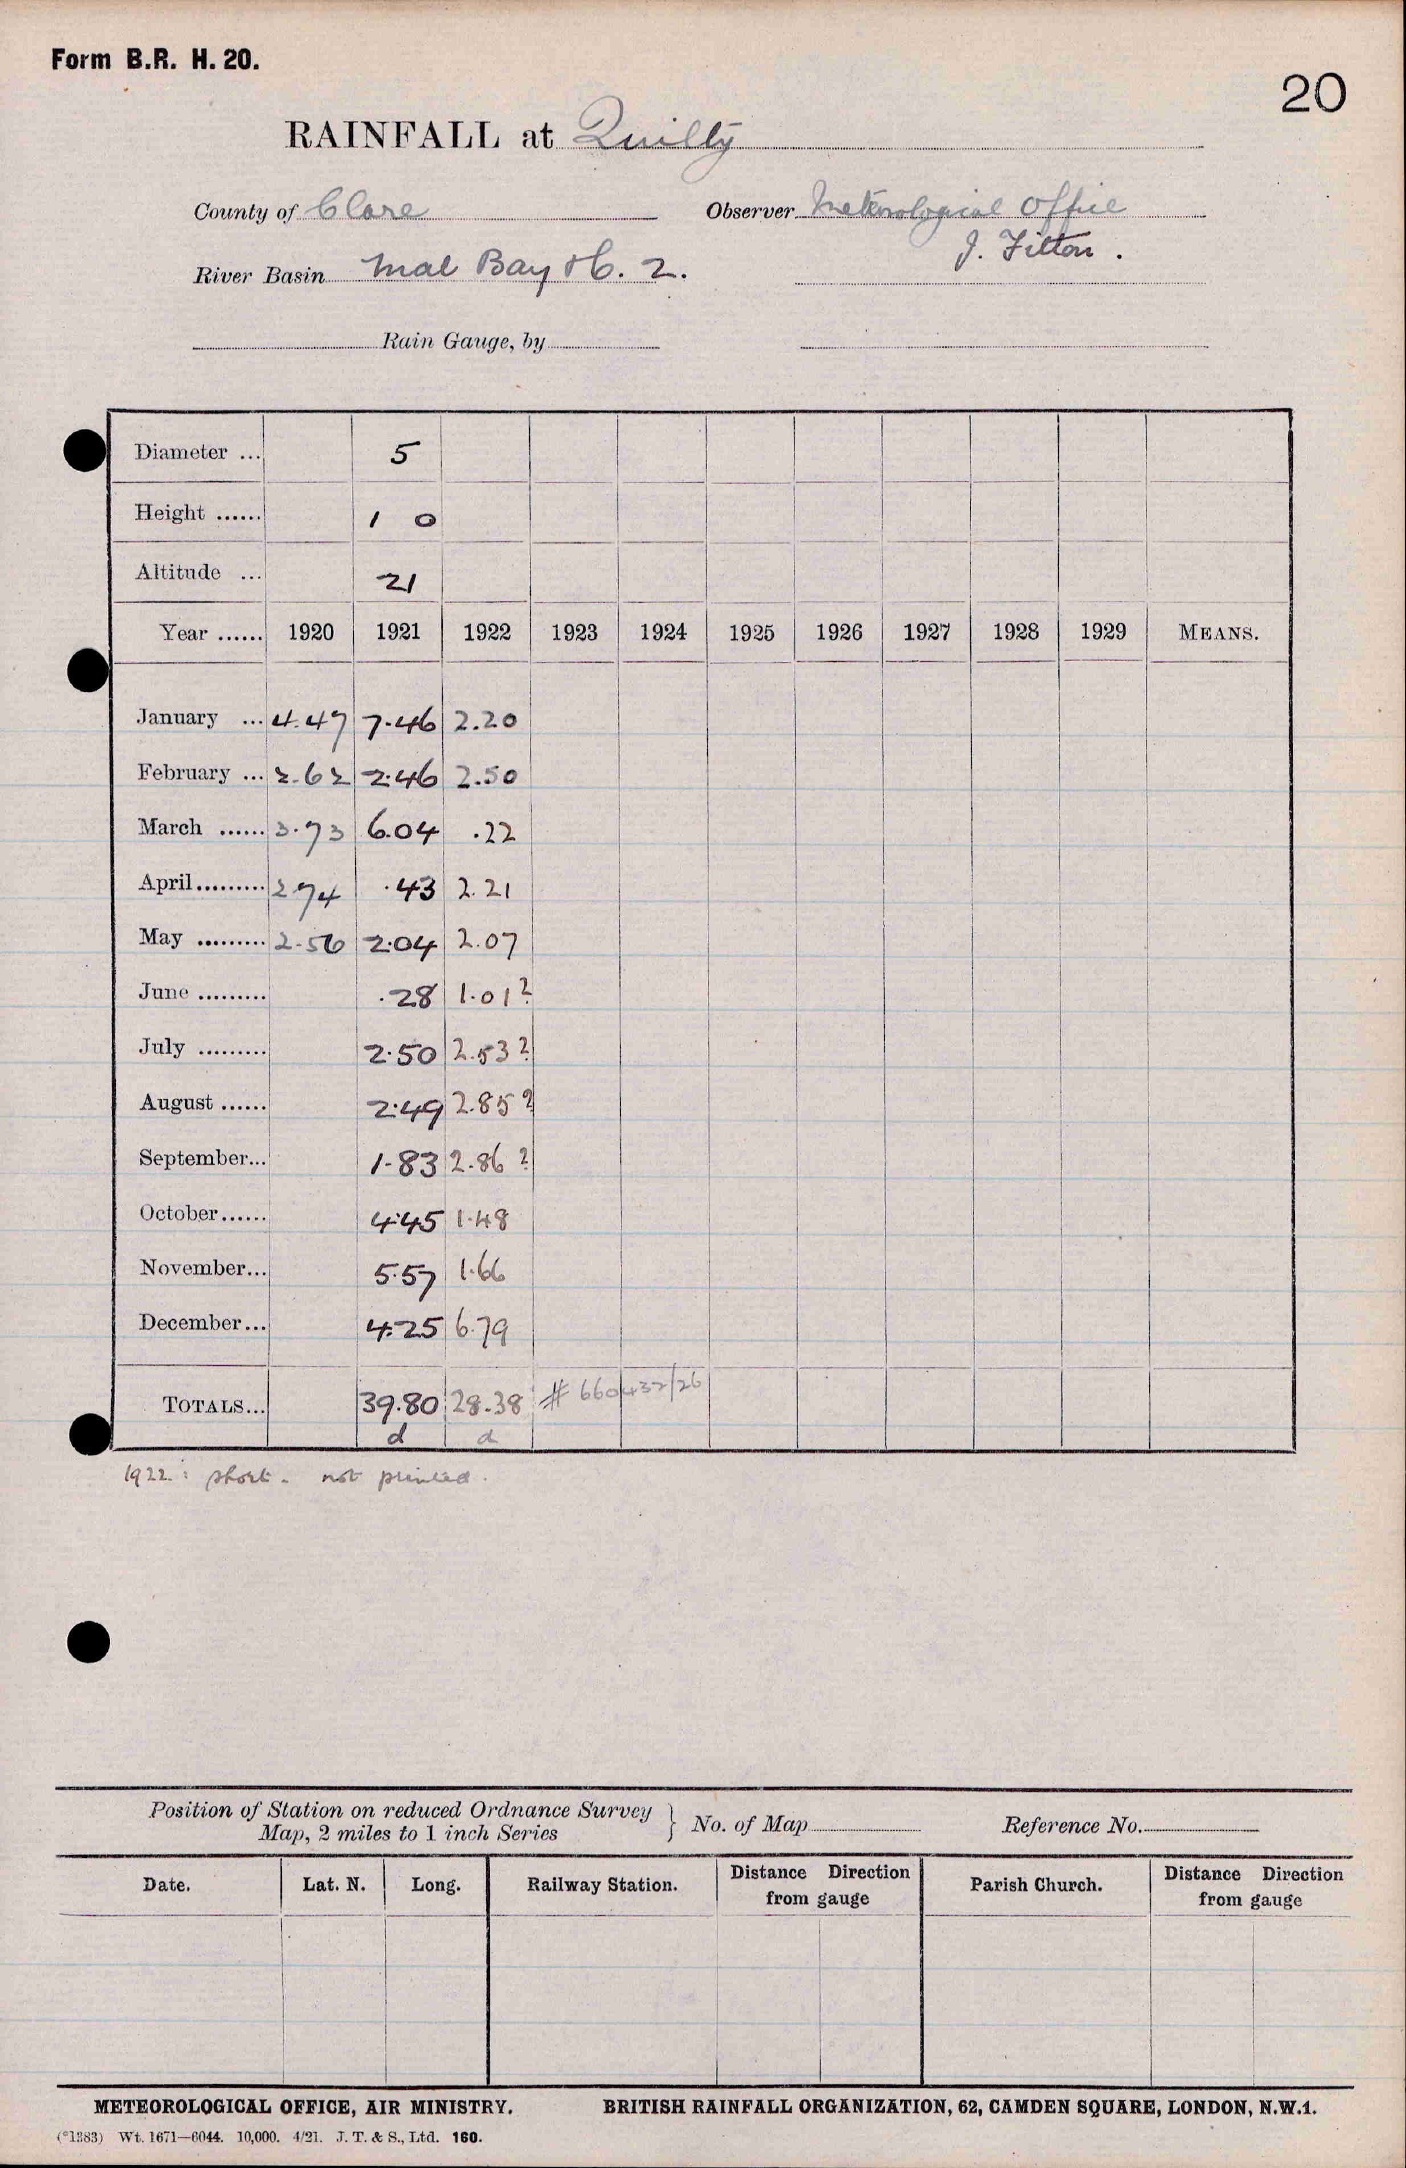 Form B.R. H. 20.
20
RAINFALL at Quilty
County of Clare Observer Meteorological Office
J. Filton.
River Basin Mal Bay &c. 2.
Rain Gauge, by
Diameter ... 5
Height ...... 1 0
Altitude ... 21
Year ...... 1920 1921 1922 1923 1924 1925 1926 1927 1928 1929 MEANS.
January ... 4.47 7.46 2.20
February ... 2.62 2.46 2.50
March ...... 3.73 6.04 .22
April......... 2.74 .43 2.21
May ......... 2.56 2.04 2.07
June ......... .28 1.01?
July ......... 2.50 2.53?
August ...... 2.49 2.85?
September... 1.83 2.86?
October...... 4.45 1.48
November... 5.57 1.66
December... 4.25 6.79
TOTALS... 39.80 28.38 # 660432/26
d d
1922 : short - not printed.
Position of Station on reduced Ordnance Survey
Map, 2 miles to 1 inch Series } No. of Map Reference No.
Date. Lat. N. Long. Railway Station. Distance Direction from gauge Parish Church. Distance Direction from gauge
METEOROLOGICAL OFFICE, AIR MINISTRY. BRITISH RAINFALL ORGANIZATION, 62, CAMDEN SQUARE, LONDON, N.W.1.
(*1383) Wt. 1671—6044. 10,000. 4/21. J. T. & S., Ltd. 160.